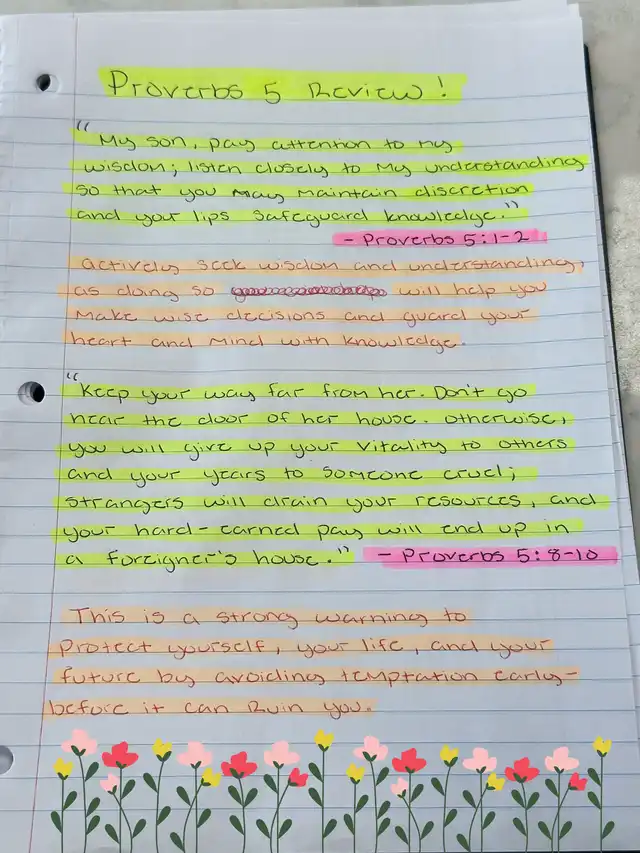 Proverbs 5 Review!
"My son, pay attention to my
wisdom; listen closely to my understanding
so that you may maintain discretion
and your lips safeguard knowledge."
- Proverbs 5:1-2
Actively seek wisdom and understanding,
as doing so will help you
make wise decisions and guard your
heart and mind with knowledge.
"Keep your way far from her. Don't go
near the door of her house. Otherwise,
you will give up your vitality to others
and your years to someone cruel;
strangers will drain your resources, and
your hard-earned pay will end up in
a foreigner's house." - Proverbs 5:8-10
This is a strong warning to
protect yourself, your life, and your
future by avoiding temptation early-
before it can ruin you.